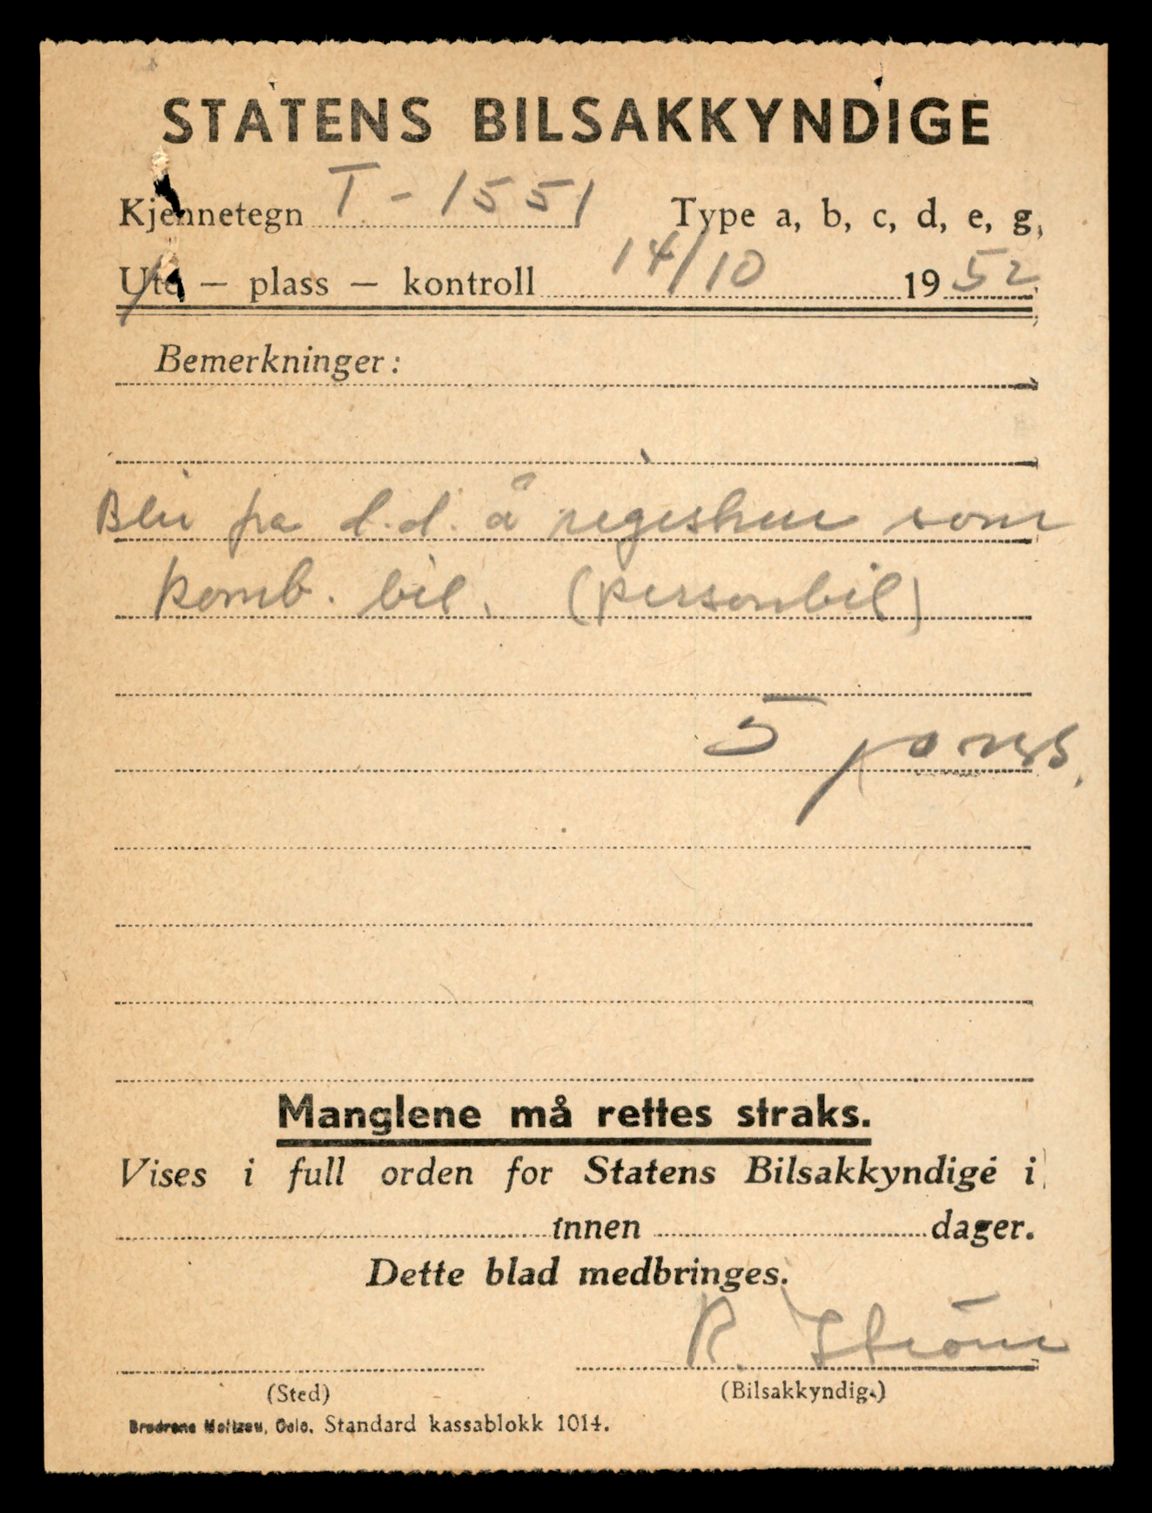 STATENS BILSAKKYNDIGE
Kjennetegn T - 1551 Type a, b, c, d, e, g,
Ute – plass – kontroll 14/10 1952
Bemerkninger:
Blir fra d.d. å registrere som
komb. bil. (personbil)
5 pers.
Manglene må rettes straks.
Vises i full orden for Statens Bilsakkyndige i
innen dager.
Dette blad medbringes.
R. Strøm
(Sted) (Bilsakkyndig.)
Brødrene Moltzau, Oslo. Standard kassablokk 1014.